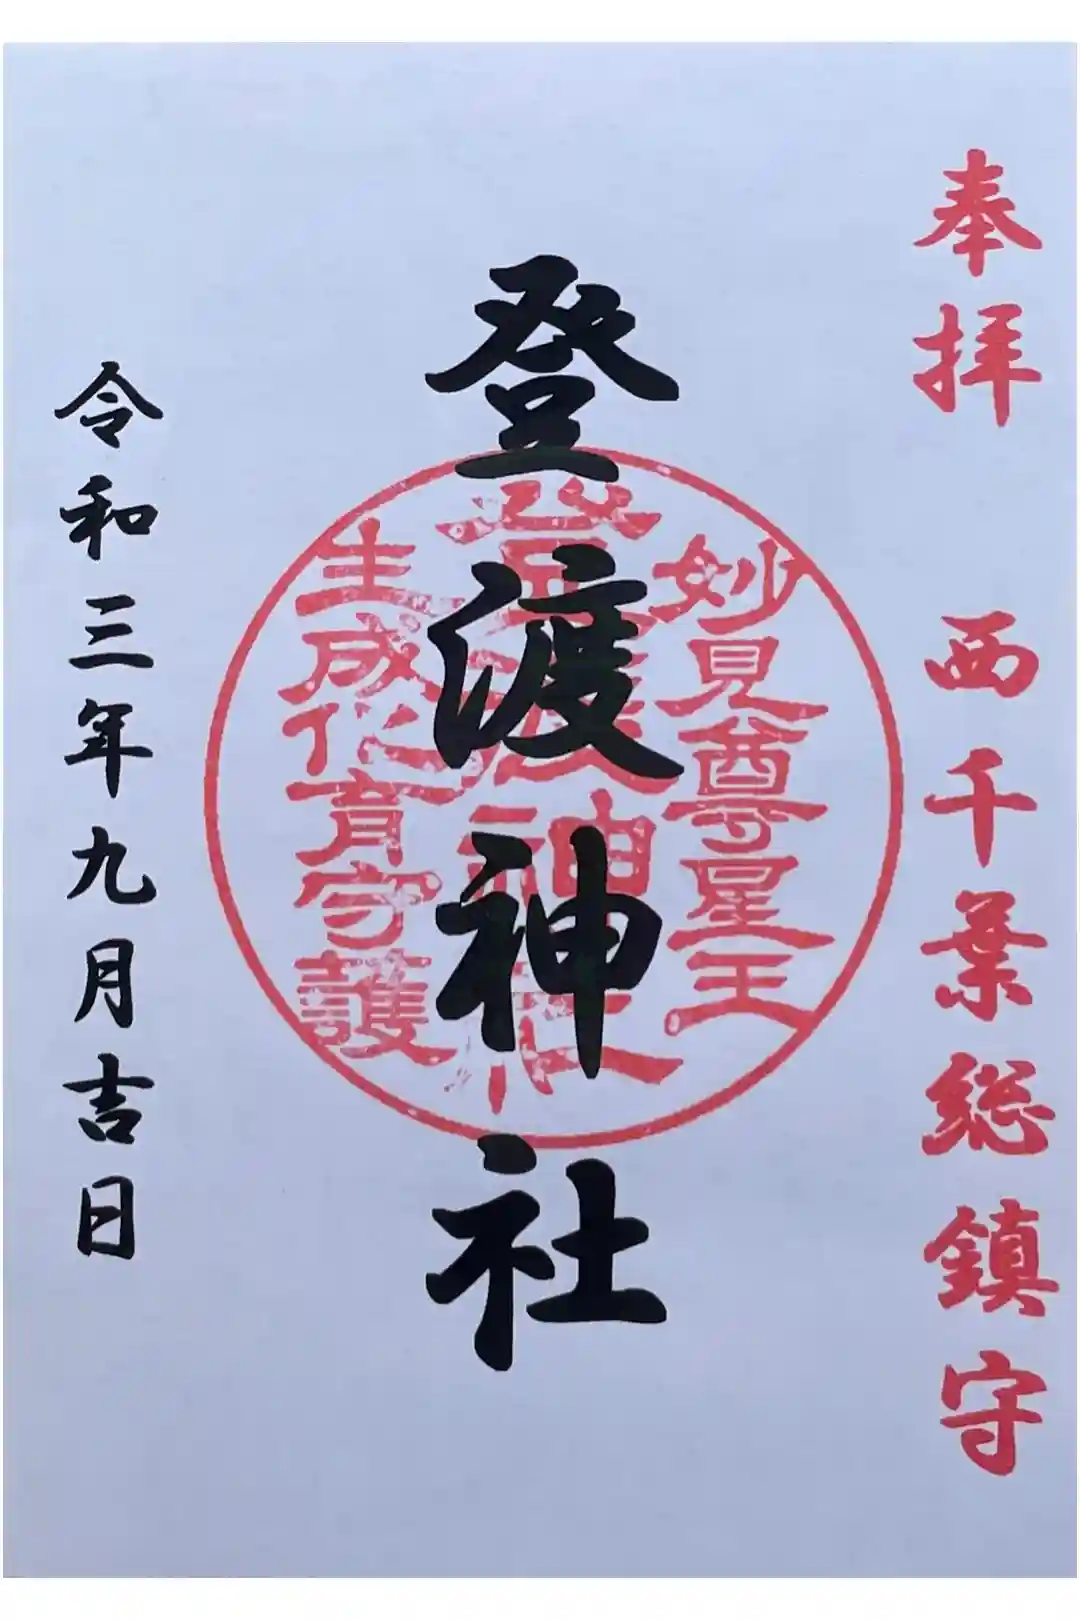 奉拝 西千葉総鎮守
登渡神社
妙見尊星王
登渡神社
生成化育守護
令和三年九月吉日